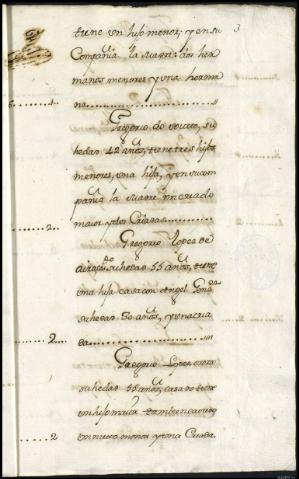 3
tiene un hijo menor, y en su
Compañia la suegra: dos her
manos menores y una herma
na
Gregorio do vouceo, su
hedad 42 años, tiene tres hijos
menores, una hija, y en su com
pañia la suegra un criado
maior y dos Criadas
2
Gregorio Lopez de
su hedad 55 años, tiene
una hija casa con Angel
su hedad 30 años, y una cria
da
2
Gregorio Lopez
su hedad 55 años, casado tiene
un hijo maior tambien casado
un nieto menor y una Criada.
2